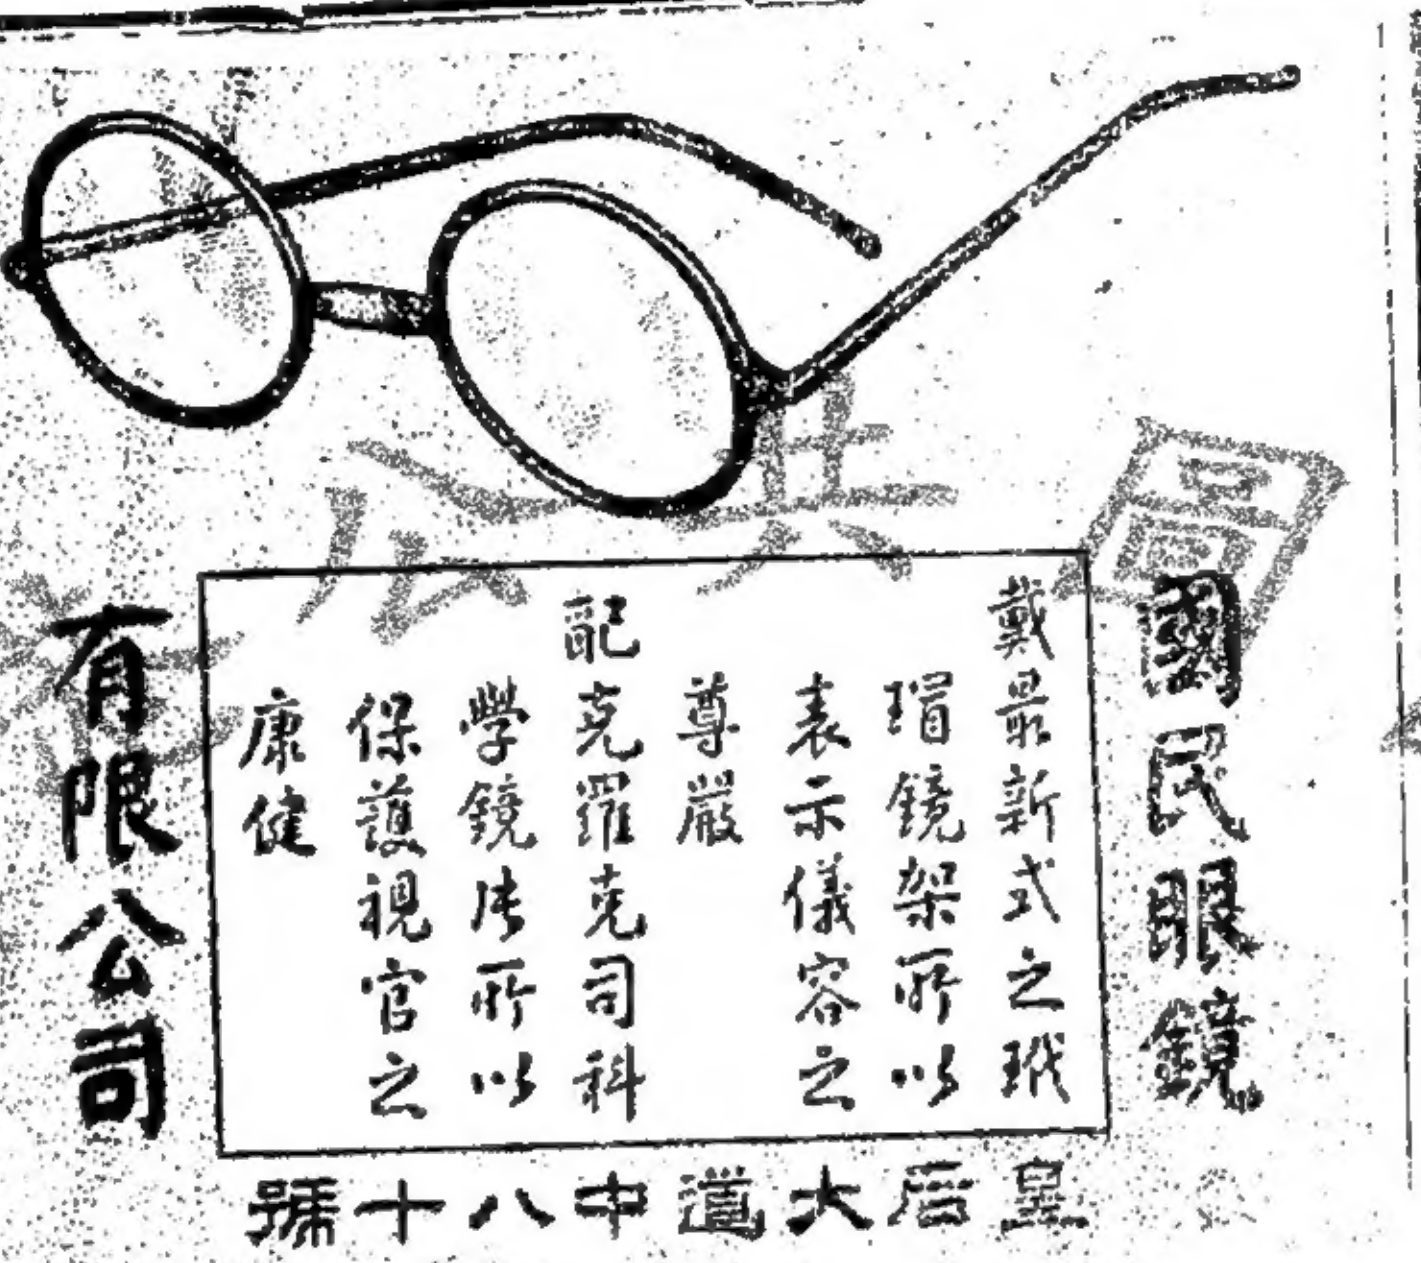 國民眼鏡
戴最新式之玳
瑁鏡架所以
表示儀容之
尊嚴
配克羅克司科
學鏡片所以
保護視官之
康健
有限公司
皇后大道中八十號
圖
公共